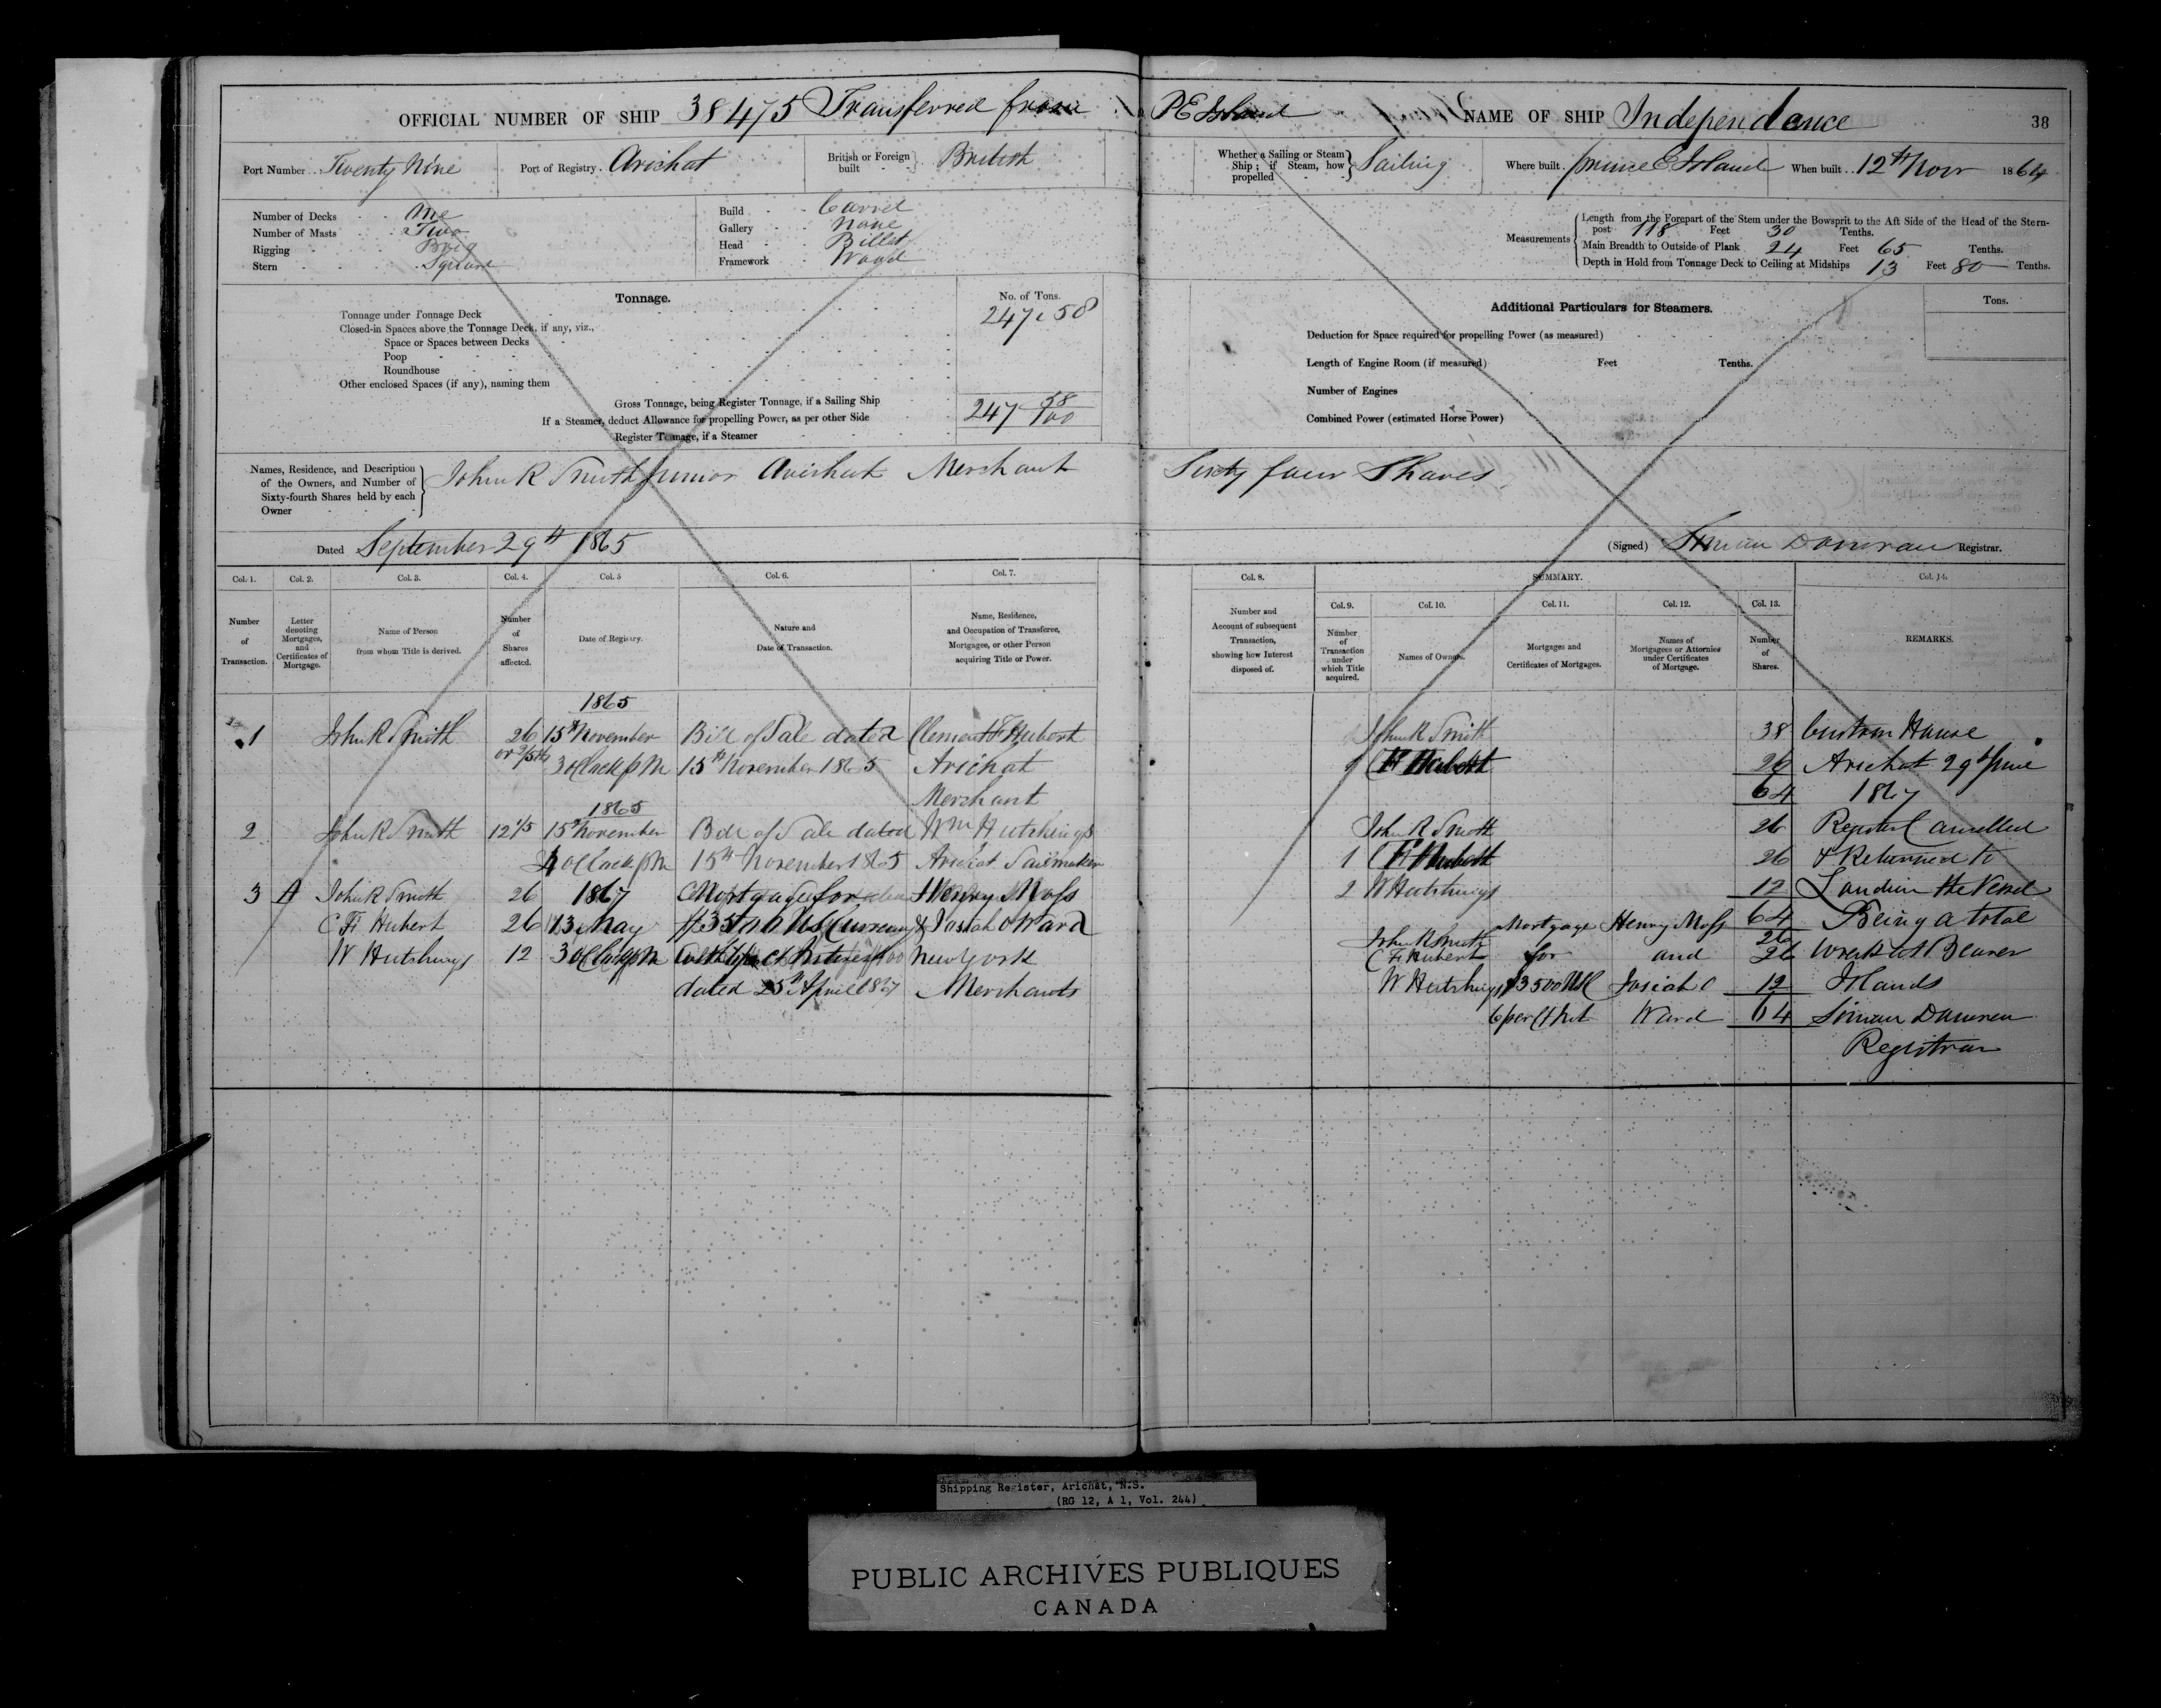 OFFICIAL NUMBER OF SHIP 38475 Transferred from P E Island NAME OF SHIP Independence 38
Port Number Twenty Nine Port of Registry Arichat British or Foreign built British
Whether a Sailing or Steam Ship; if Steam, how propelled Sailing Where built prince E Island When built 12th Novr 1864
Number of Decks One
Number of Masts Two
Rigging Brig
Stern Square
Build Carvel
Gallery None
Head Billet
Framework Wood
Measurements
Length from the Forepart of the Stem under the Bowsprit to the Aft Side of the Head of the Stern-
post 118 Feet 30 Tenths.
Main Breadth to Outside of Plank 24 Feet 65 Tenths.
Depth in Hold from Tonnage Deck to Ceiling at Midships 13 Feet 80 Tenths.
Tonnage.
No. of Tons.
Tonnage under Tonnage Deck 247.58
Closed-in Spaces above the Tonnage Deck, if any, viz.,
Space or Spaces between Decks
Poop
Roundhouse
Other enclosed Spaces (if any), naming them
Gross Tonnage, being Register Tonnage, if a Sailing Ship 247 58/100
If a Steamer, deduct Allowance for propelling Power, as per other Side
Register Tonnage, if a Steamer
Additional Particulars for Steamers.
Tons.
Deduction for Space required for propelling Power (as measured)
Length of Engine Room (if measured) Feet Tenths.
Number of Engines
Combined Power (estimated Horse Power)
Names, Residence, and Description
of the Owners, and Number of
Sixty-fourth Shares held by each
Owner
John R Smith Junior Arichat Merchant Sixty four Shares
Dated September 29th 1865
(Signed) Simon Donovan Registrar.
Col. 1.
Number
of
Transaction.
Col. 2.
Letter
denoting
Mortgages,
and
Certificates of
Mortgage.
Col. 3.
Name of Person
from whom Title is derived.
Col. 4.
Number
of
Shares
affected.
Col. 5
Date of Registry.
Col. 6.
Nature and
Date of Transaction.
Col. 7.
Name, Residence,
and Occupation of Transferee,
Mortgagee, or other Person
acquiring Title or Power.
Col. 8.
Number and
Account of subsequent
Transaction,
showing how Interest
disposed of.
SUMMARY.
Col. 9.
Number
of
Transaction
under
which Title
acquired.
Col. 10.
Names of Owners.
Col. 11.
Mortgages and
Certificates of Mortgages.
Col. 12.
Names of
Mortgagees or Attornies
under Certificates
of Mortgage.
Col. 13.
Number
of
Shares.
Col. 14.
REMARKS.
1865
1 John R Smith 26 15th November Bill of Sale dated Clement F Hubert
3 oClock p M 15th November 1865 Arichat
Merchant
1865
2 John R Smith 12 4/5 15th November Bill of Sale dated Wm Hutchings
4 oClock p M 15th November 1865 Arichat Sailmaker
3 A John R Smith 26 1867 Mortgage for Henry Moss
C F Hubert 26 13 May $3500 U S Currency & Josiah O Ward
W Hutchings 12 3 oClock p M New York
dated 25th April 1867 Merchants
John R Smith 38
1 C F Hubert 26
64
John R Smith 26
1 C F Hubert 26
2 W Hutchings 12
64
John R Smith Mortgage Henry Moss 26
C F Hubert for and 26
W Hutchings $3500 Josiah O 12
6 per Ct Int Ward 64
Custom House
Arichat 29th June
1867
Register Cancelled
& Returned to
London the Vessel
Being a total
wreck at Beaver
Islands
Simon Donovan
Registrar
Shipping Register, Arichat, N.S.
(RG 12, A 1, Vol. 244)
PUBLIC ARCHIVES PUBLIQUES
CANADA